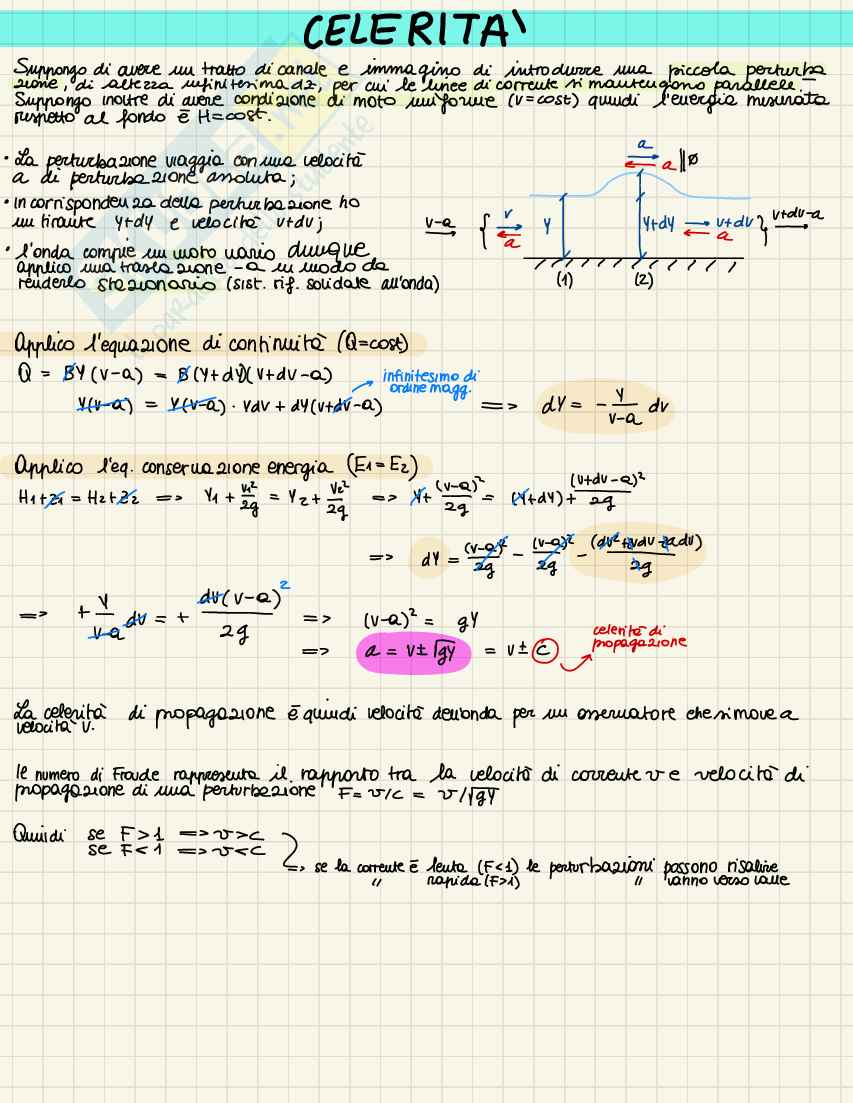 CELERITÀ
Suppongo di avere un tratto di canale e immagino di introdurre una piccola perturba
zione, di altezza infinitesima dz, per cui le linee di corrente si mantengono parallele.
Suppongo inoltre di avere condizione di moto uniforme (v=cost) quindi l'energia misurata
rispetto al fondo è H=cost.
• La perturbazione viaggia con una velocità
a di perturbazione assoluta;
• in corrispondenza della perturbazione ho
un tirante y+dy e velocità v+dv;
• l'onda compie un moto vario dunque
applico una traslazione -a in modo da
renderlo stazionario (sist. rif. solidale all'onda)
a
a
v-a
v
a
Y
Y+dY
v+dv
a
v+dv-a
(1)
(2)
Applico l'equazione di continuità (Q=cost)
Q = BY(v-a) = B(Y+dY)(v+dv-a)
infinitesimo di
ordine magg.
Y(v-a) = Y(v-a) · Ydv + dY(v+dv-a) ==> dY = - Y/(v-a) dv
Applico l'eq. conservazione energia (E1=E2)
H1+z1 = H2+z2 ==> Y1 + V1²/2g = Y2 + V2²/2g ==> Y + (v-a)²/2g = (Y+dY) + (v+dv-a)²/2g
==> dY = (v-a)²/2g - (v-a)²/2g - (dv²+2vdv-2adv)/2g
==> + Y/(v-a) dv = + dv(v-a)²/2g ==> (v-a)² = gY
==> a = v ± √gY = v ± c
celerità di
propagazione
La celerità di propagazione è quindi velocità dell'onda per un osservatore che si move a
velocità v.
Il numero di Froude rappresenta il rapporto tra la velocità di corrente v e velocità di
propagazione di una perturbazione F = v/c = v/√gY
Quindi se F>1 ==> v>c
se F<1 ==> v<c
==> se la corrente è lenta (F<1) le perturbazioni possono risalire
" rapida (F>1) " vanno verso valle